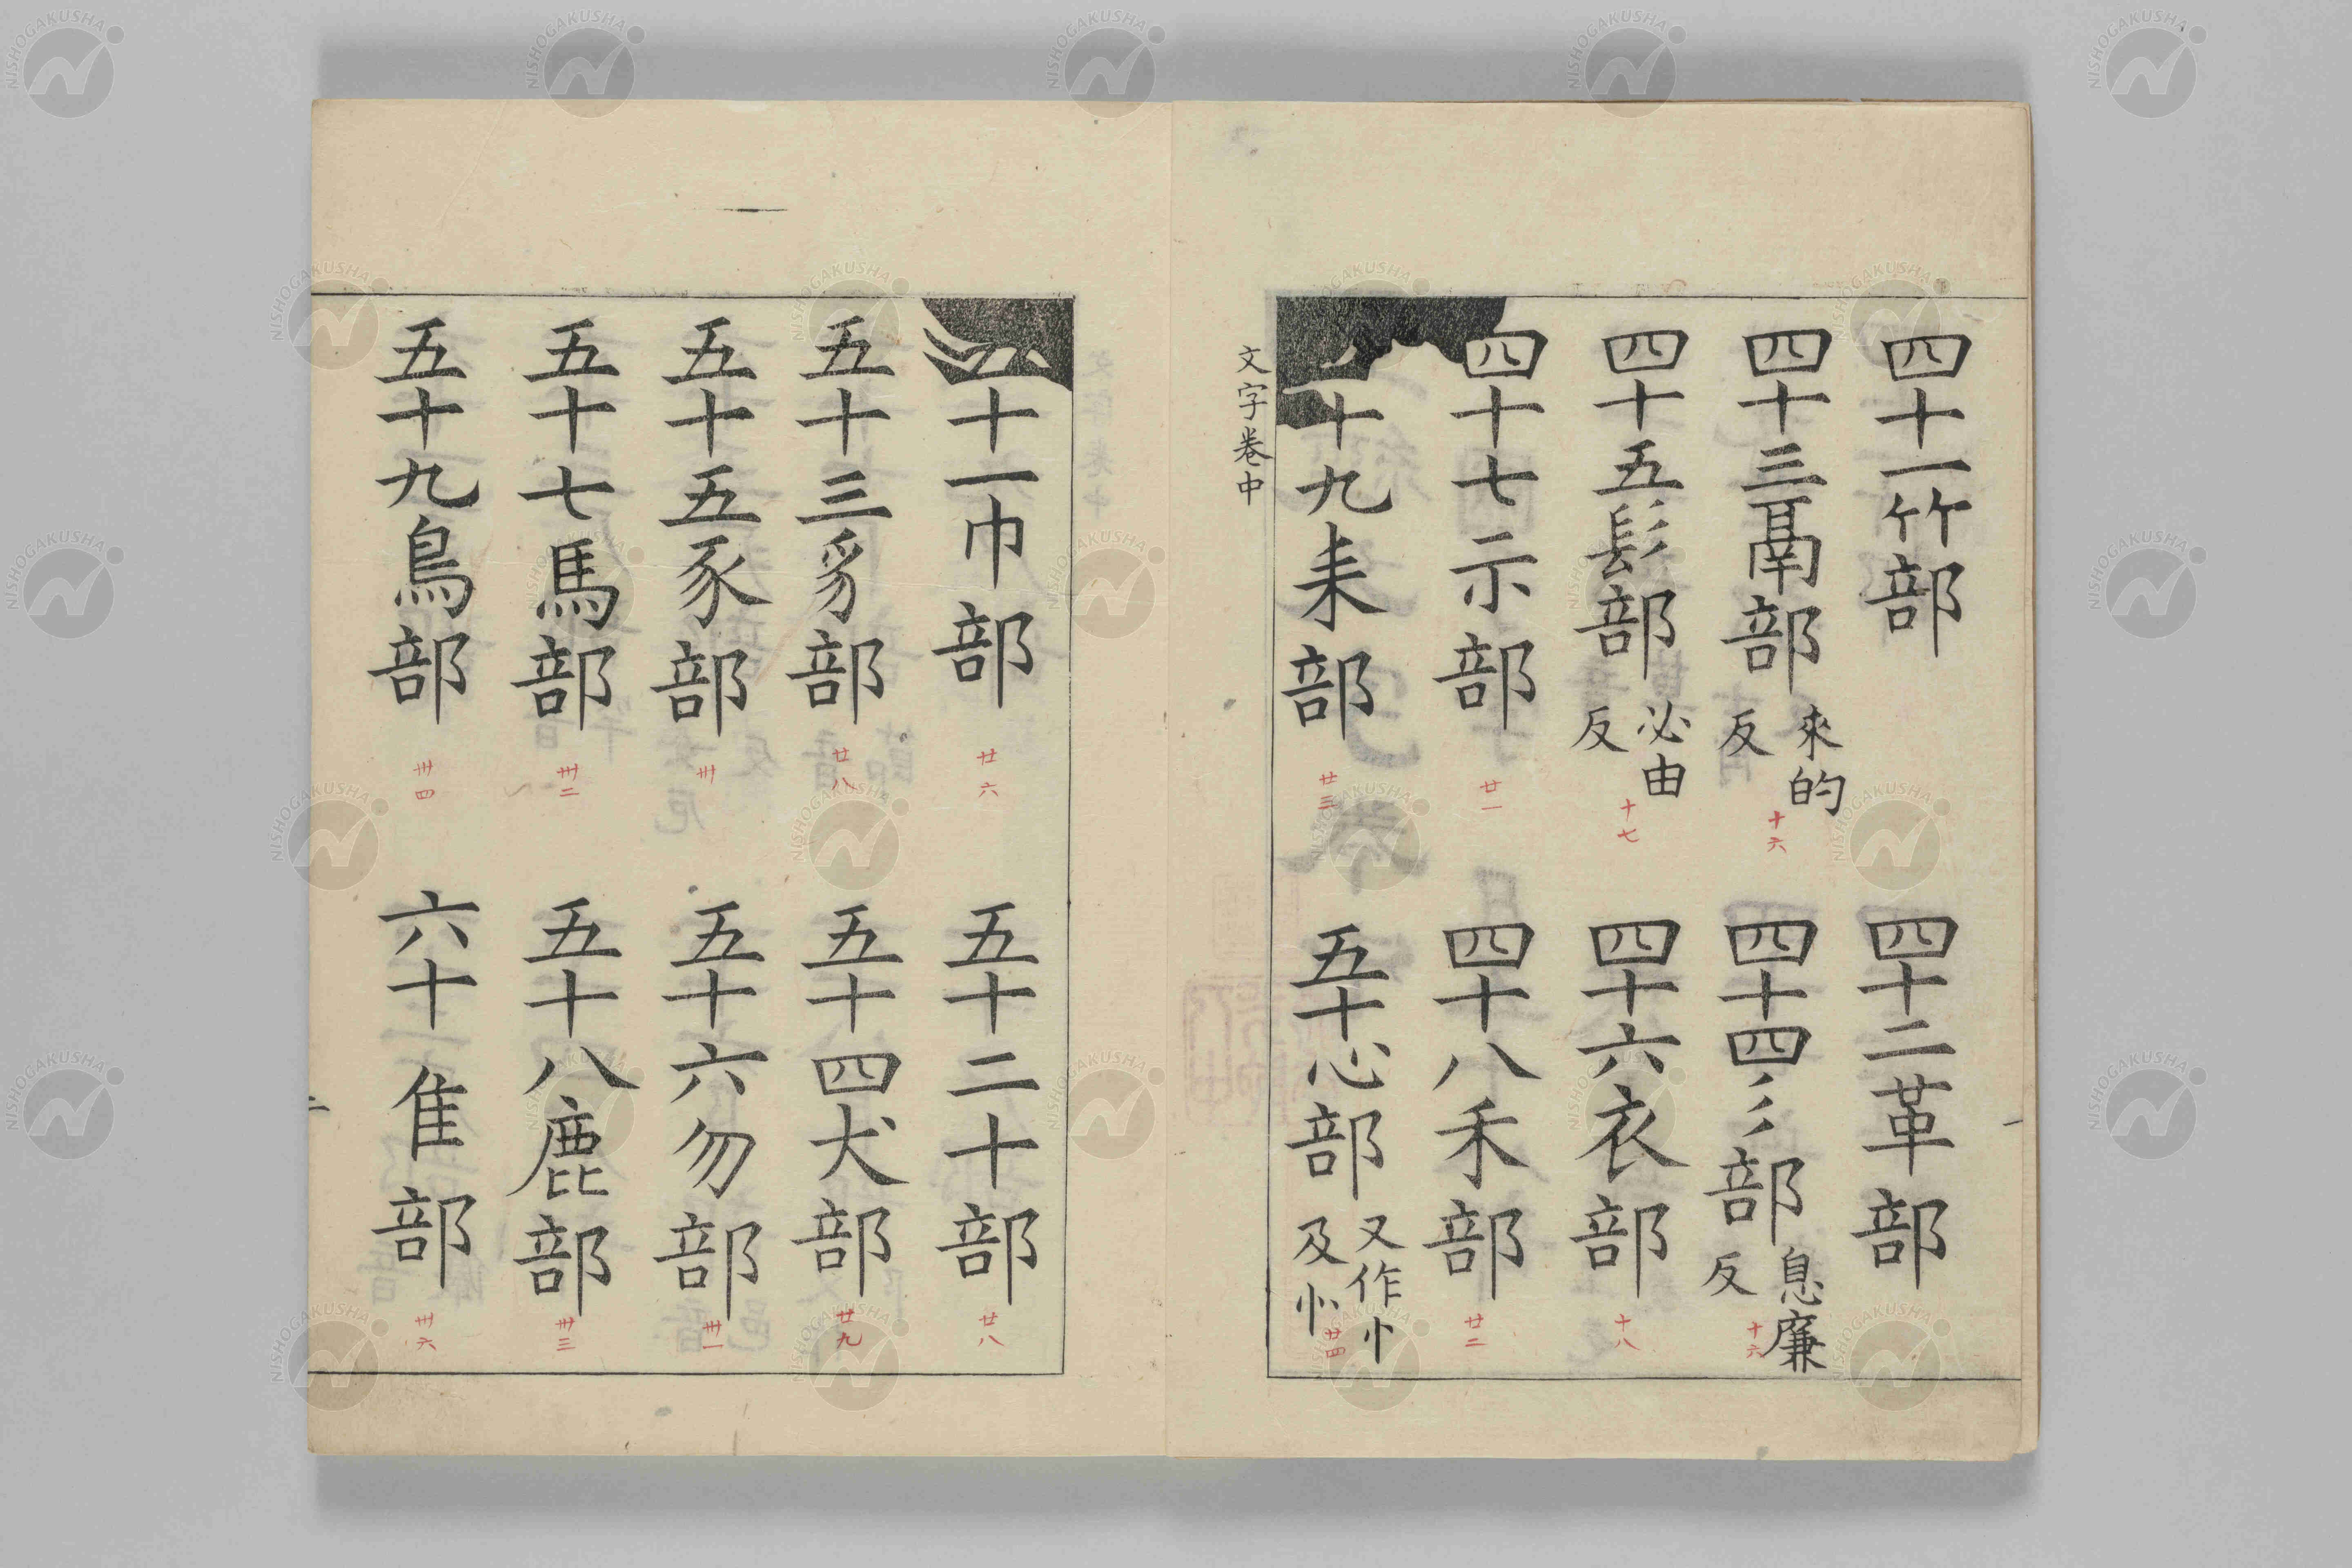 四十一竹部
四十二革部
四十三鬲部 來的反 十六
四十四彡部 息廉反 十六
四十五髟部 必由反 十七
四十六衣部 十八
四十七示部 廿一
四十八禾部 廿二
十九耒部 廿三
五十心部 又作㣺及忄 廿四
文字卷中
五十一巾部 廿六
五十二十部 廿八
五十三豸部 廿八
五十四犬部 廿九
五十五豕部 卅
五十六勿部 卅一
五十七馬部 卅二
五十八鹿部 卅三
五十九鳥部 卅四
六十隹部 卅六
NISHOGAKUSHA